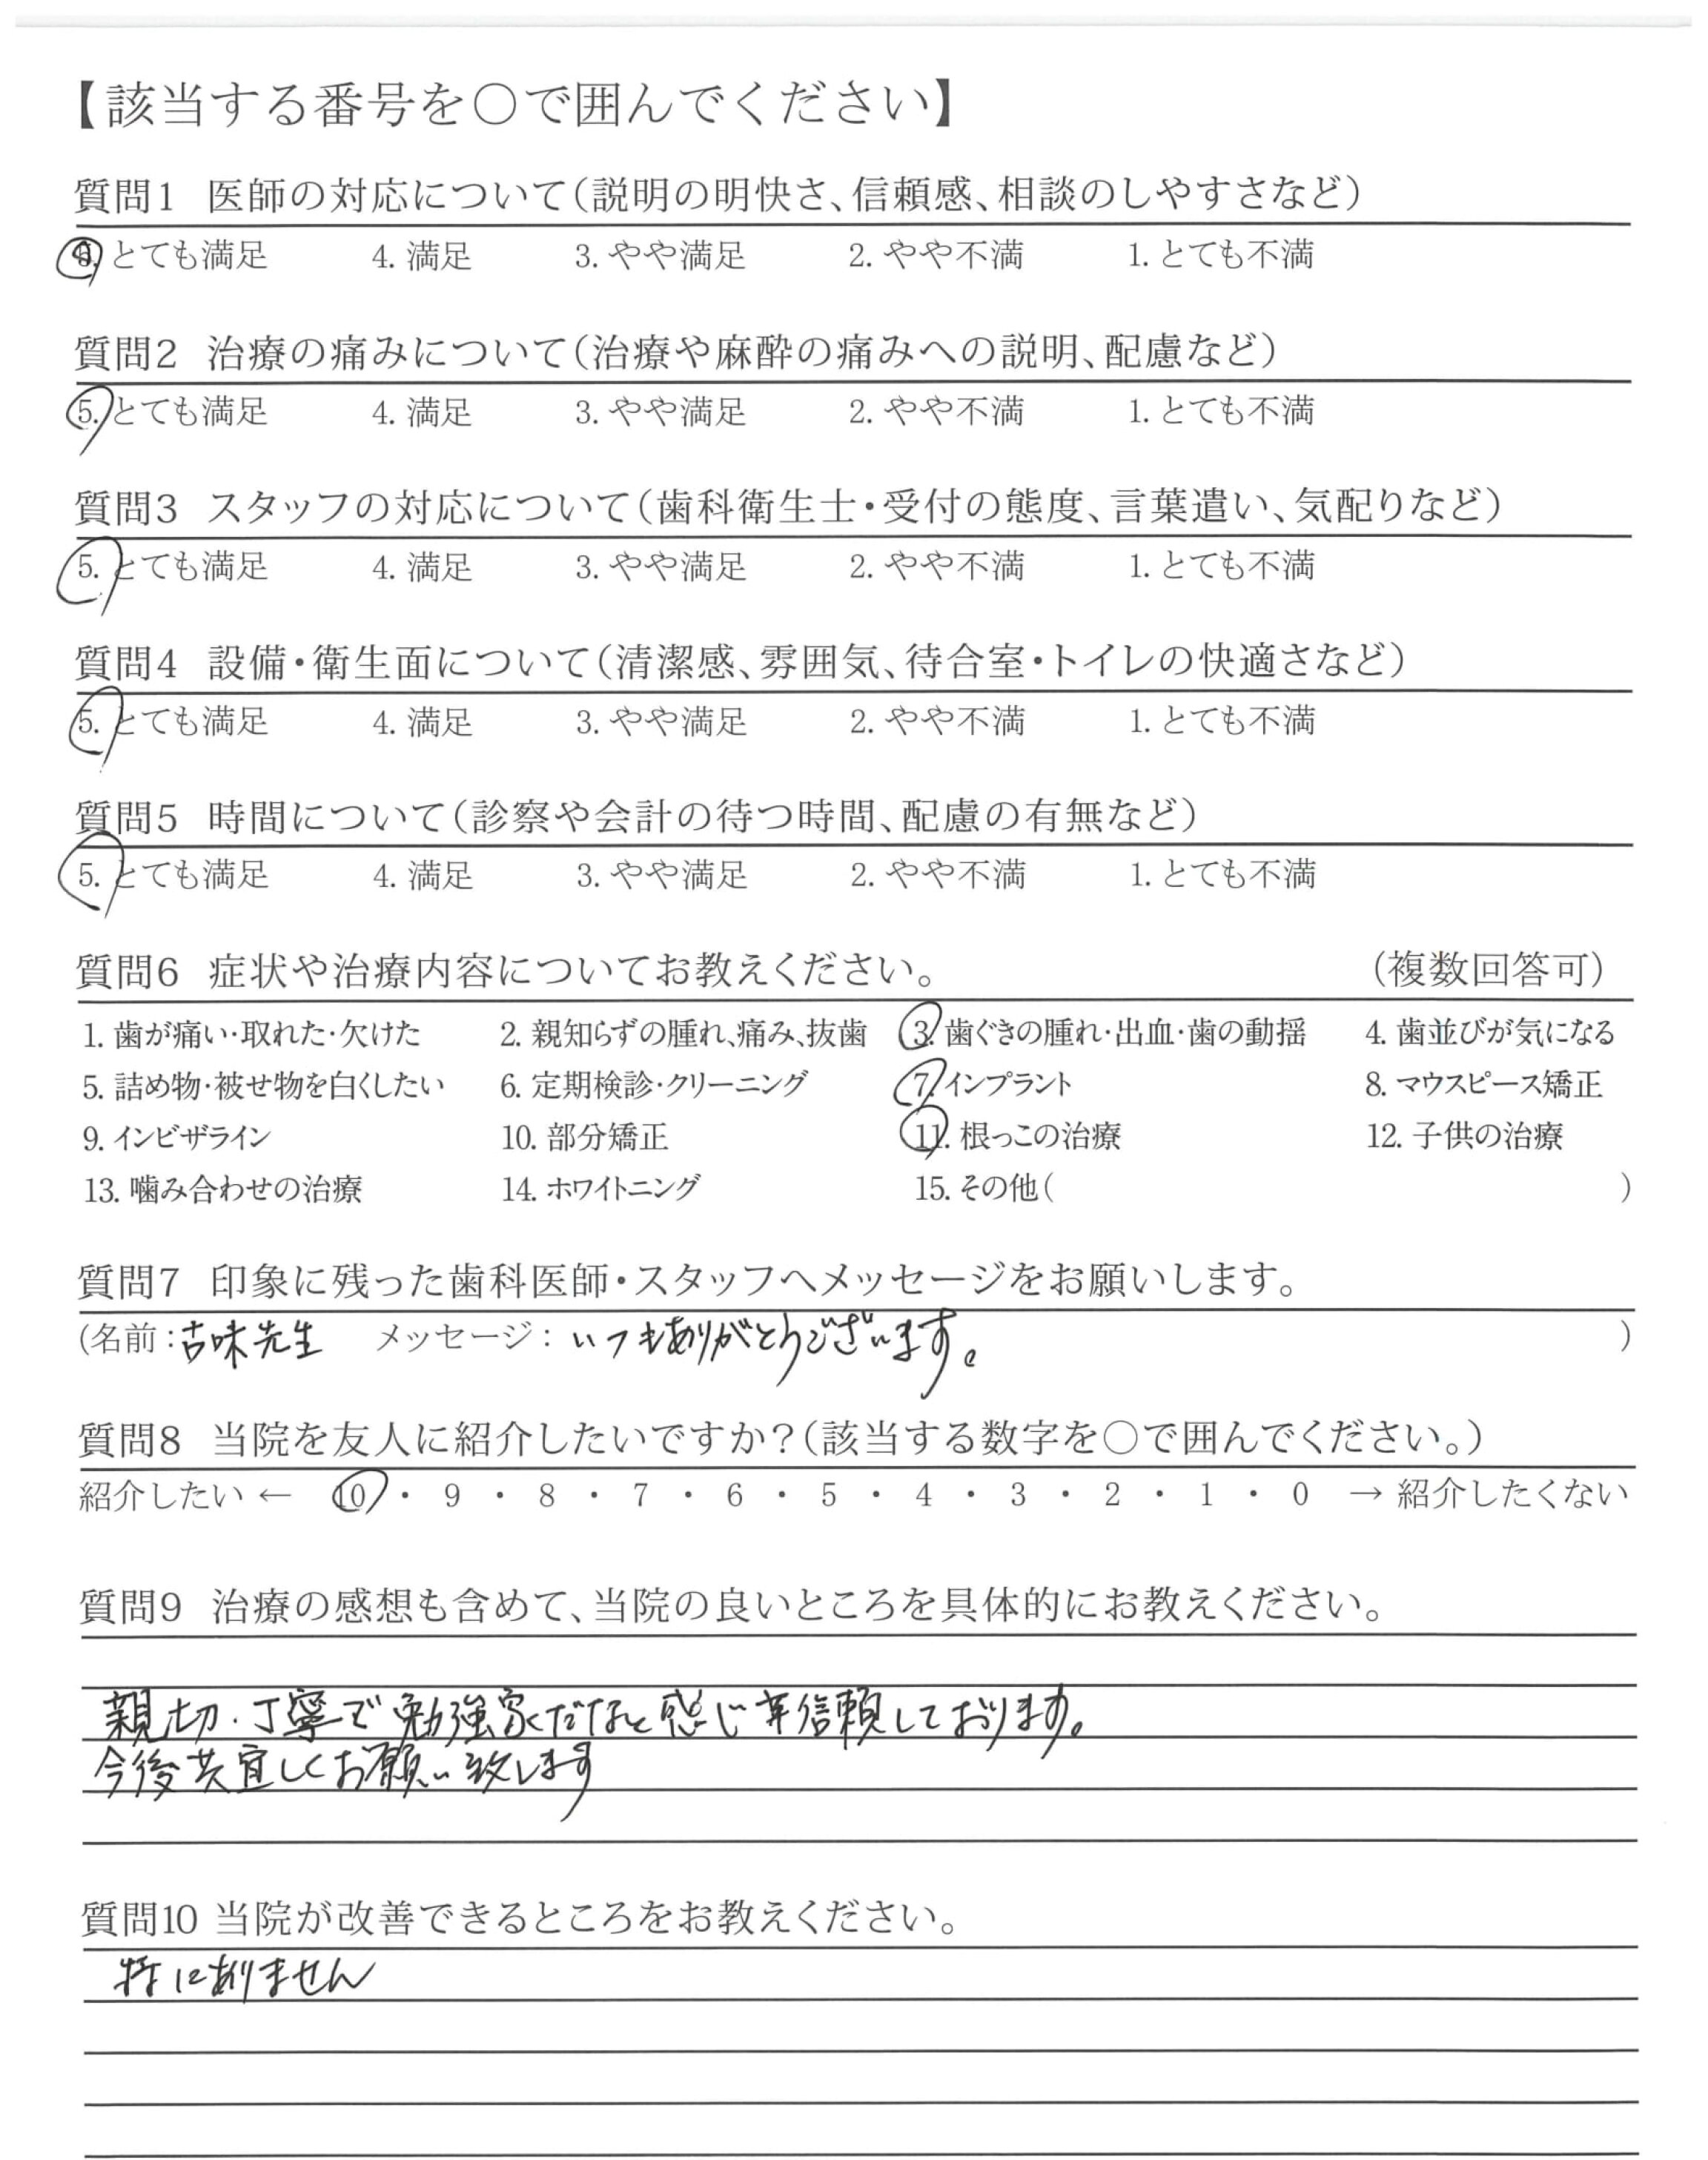 【該当する番号を○で囲んでください】
質問1 医師の対応について(説明の明快さ、信頼感、相談のしやすさなど)
5. とても満足 4. 満足 3. やや満足 2. やや不満 1. とても不満
質問2 治療の痛みについて(治療や麻酔の痛みへの説明、配慮など)
5. とても満足 4. 満足 3. やや満足 2. やや不満 1. とても不満
質問3 スタッフの対応について(歯科衛生士・受付の態度、言葉遣い、気配りなど)
5. とても満足 4. 満足 3. やや満足 2. やや不満 1. とても不満
質問4 設備・衛生面について(清潔感、雰囲気、待合室・トイレの快適さなど)
5. とても満足 4. 満足 3. やや満足 2. やや不満 1. とても不満
質問5 時間について(診察や会計の待つ時間、配慮の有無など)
5. とても満足 4. 満足 3. やや満足 2. やや不満 1. とても不満
質問6 症状や治療内容についてお教えください。 (複数回答可)
1. 歯が痛い・取れた・欠けた 2. 親知らずの腫れ、痛み、抜歯 3. 歯ぐきの腫れ・出血・歯の動揺 4. 歯並びが気になる
5. 詰め物・被せ物を白くしたい 6. 定期検診・クリーニング 7. インプラント 8. マウスピース矯正
9. インビザライン 10. 部分矯正 11. 根っこの治療 12. 子供の治療
13. 噛み合わせの治療 14. ホワイトニング 15. その他( )
質問7 印象に残った歯科医師・スタッフへメッセージをお願いします。
(名前:古味先生 メッセージ:いつもありがとうございます。 )
質問8 当院を友人に紹介したいですか?(該当する数字を○で囲んでください。)
紹介したい ← 10 ・ 9 ・ 8 ・ 7 ・ 6 ・ 5 ・ 4 ・ 3 ・ 2 ・ 1 ・ 0 → 紹介したくない
質問9 治療の感想も含めて、当院の良いところを具体的にお教えください。
親切・丁寧で勉強家だなと感じ信頼しております。
今後共宜しくお願い致します
質問10 当院が改善できるところをお教えください。
特にありません